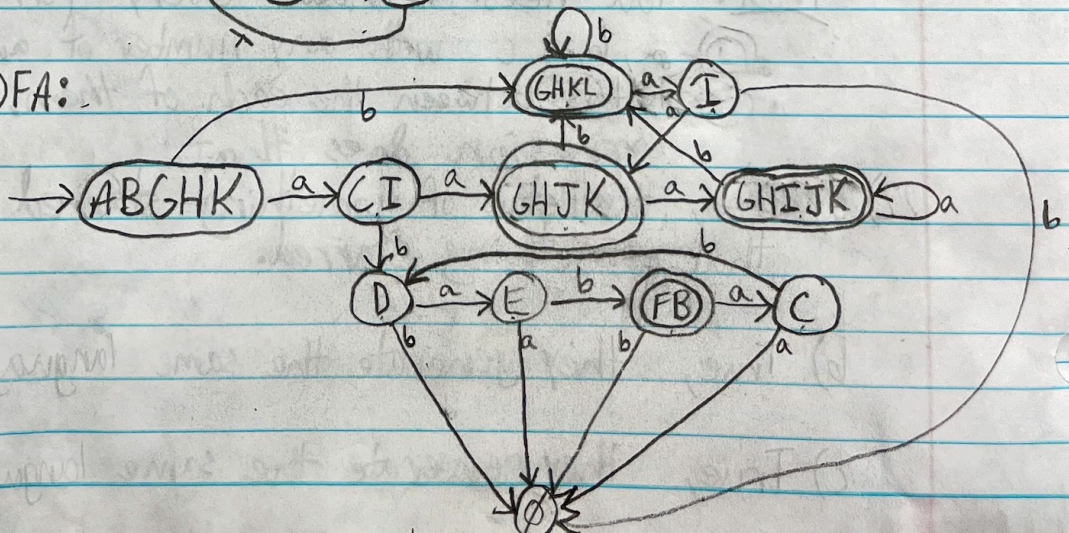 DFA:
b
GHKL
a
I
b
a
b
b
ABGHK
a
CI
a
GHJK
a
GHIJK
a
b
b
b
D
a
E
b
FB
a
C
b
a
b
a
Ø